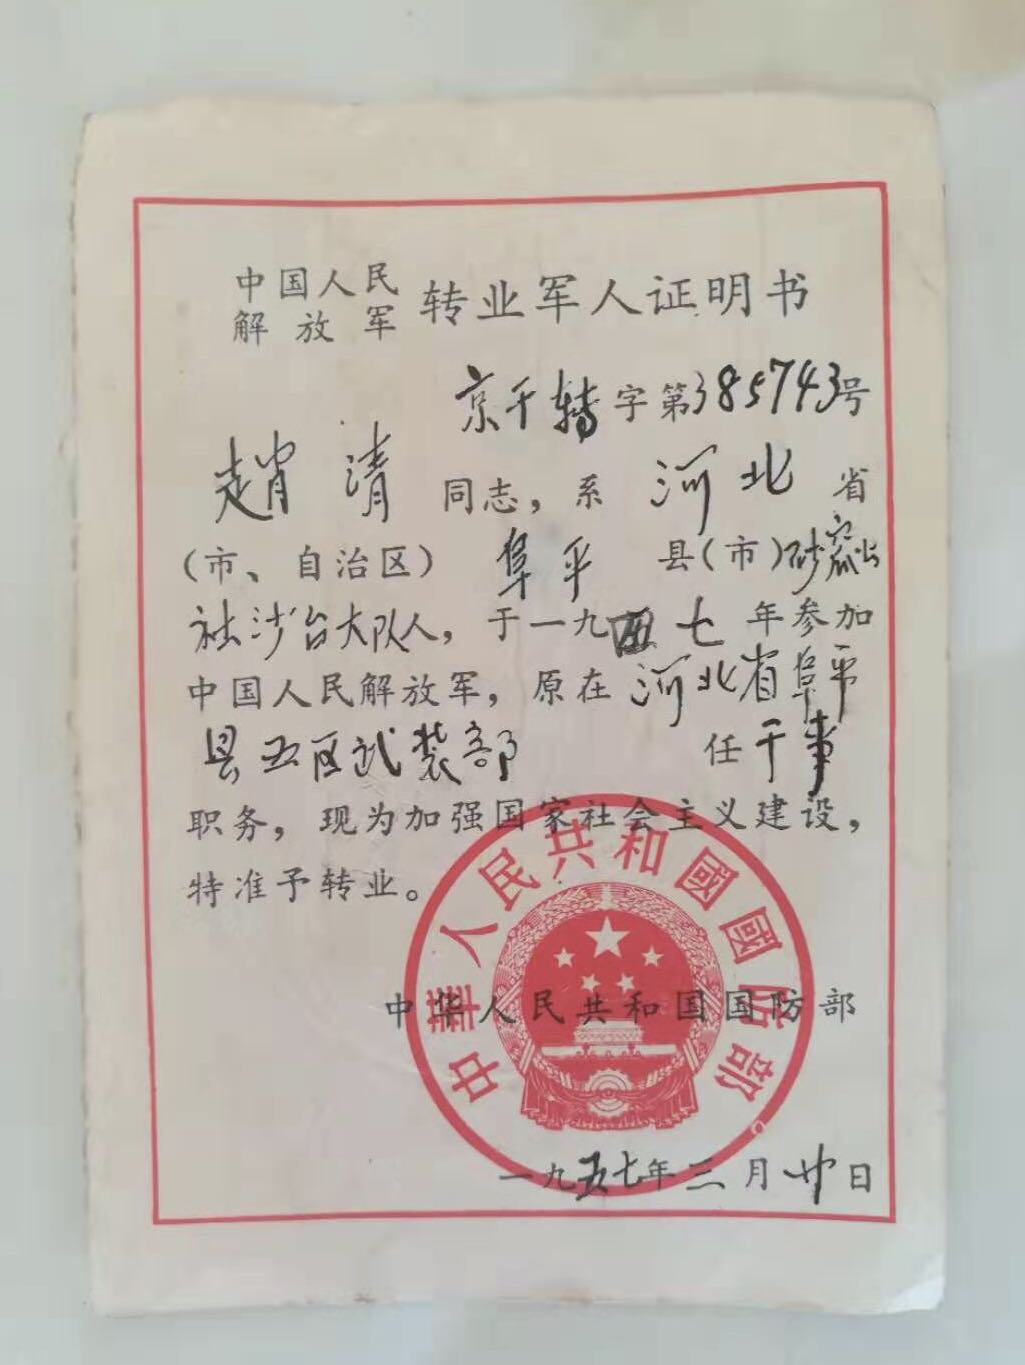 中国人民
解放军 转业军人证明书
京干转字第385743号
趙清同志，系河北省
（市、自治区）阜平县（市）砂窩公
社沙台大队人，于一九四七年参加
中国人民解放军，原在河北省阜平
县五区武装部任干事
职务，现为加强国家社会主义建设，
特准予转业。
中华人民共和国国防部
中華人民共和國國防部
一九五七年三月廿日